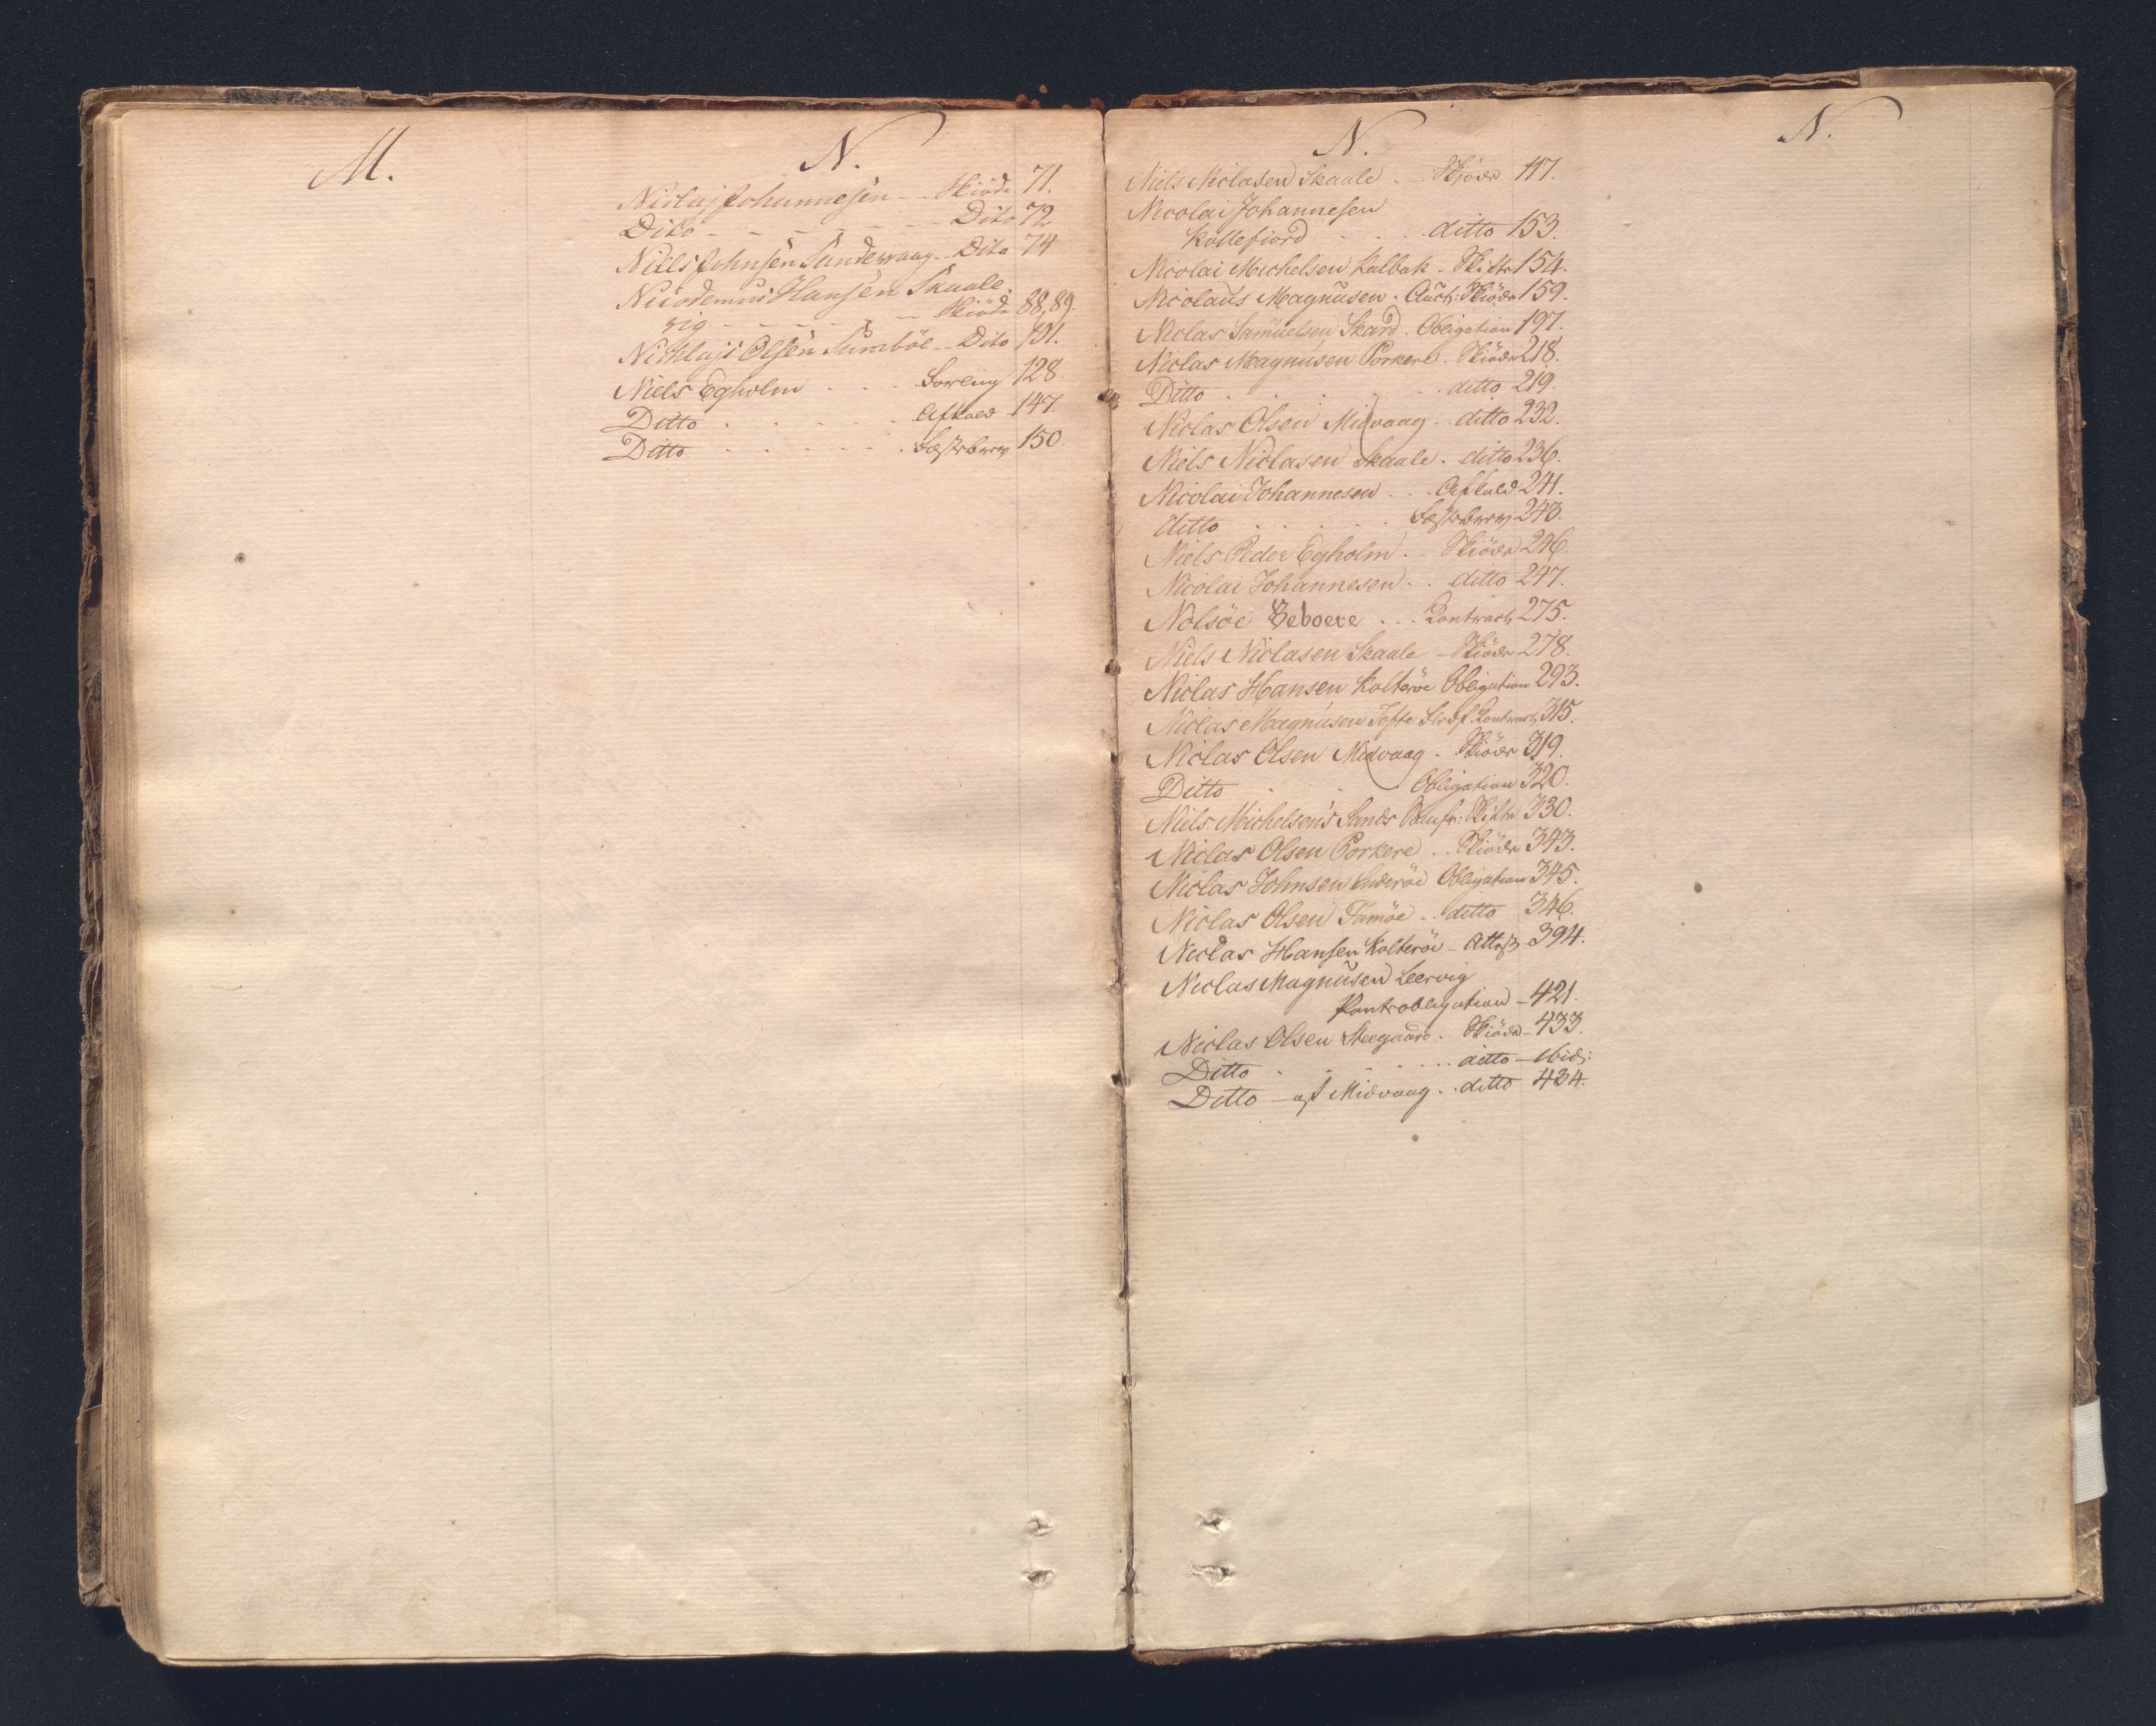 M.
N.
Niclaj Johannesen -- Skiöde 71.
Dito - - - - - - - Dito 72
Niels Johnsen Sandevaag -- Dito 74
Nicodemus Hansen Skaale-
vig - - - - - - Skiöde 88,89.
Nicklaji Olsen Sumböe -- Dito 131.
Niels Egholm . . . Sorenf 128.
Ditto . . . . . Afkald 147.
Ditto . . . . . . Fæstebrev 150.
N.
Niels Niclasen Skaale . - Skjöde 117.
Nicolai Johannesen
Kollefiord . . . ditto 153.
Nicolai Michelsen Kalbak - Skifte 154.
Nicolaus Magnusen . Auct: Skiöde 159.
Niclas Samuelsen Skard . Obligation 197.
Niclas Magnusen Porkere . Skiöde 218.
Ditto . . . . . ditto 219.
Niclas Olsen Midvaag . . ditto 232.
Niels Niclasen Skaale . ditto 236.
Nicolai Johannesen . . . Afkald 241.
ditto . . . . . Fæstebrev 243.
Niels Peder Egholm . . Skiöde 246.
Nicolai Johannesen . . ditto 247.
Nolsöe Beboere . . . Contract 275.
Niels Niclasen Skaale - Skiöde 278.
Niclas Hansen Kolteröe Obligation 293.
Niclas Magnusen Tofte Contract 315.
Niclas Olsen Midvaag . Skiöde 319.
Ditto . . Obligation 320.
Niels Michelsens Sands Skifte 330.
Niclas Olsen Porkere . . Skiöde 343.
Niclas Johnsen Suderöe Obligation 345.
Niclas Olsen Famöe . . ditto 346.
Niclas Hansen Kolteröe - Attest 394.
Niclas Magnusen Leervig
Pantobligation - 421.
Niclas Olsen Steegaard . Skiöde - 433.
Ditto . . . . . . ditto - ibid:
Ditto - af Midvaag . . ditto 434.
N.